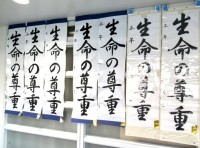 生命の尊重
生命の尊重
生命の尊重
生命の尊重
生命の尊重
生命の尊重